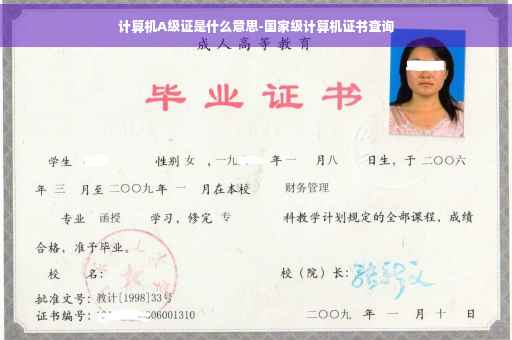 计算机A级证是什么意思-国家级计算机证书查询
成人高等教育
毕业证书
学生 性别 女 ,一九 年 一 月八 日生，于 二〇〇六
年 三 月至 二〇〇九年 一 月在本校 财务管理
专业 函授 学习，修完 专 科教学计划规定的全部课程，成绩
合格，准予毕业。
校 名： 校（院）长：
批准文号：教计[1998]33号
证书编号： 06001310 二〇〇九 年 一 月 十 日